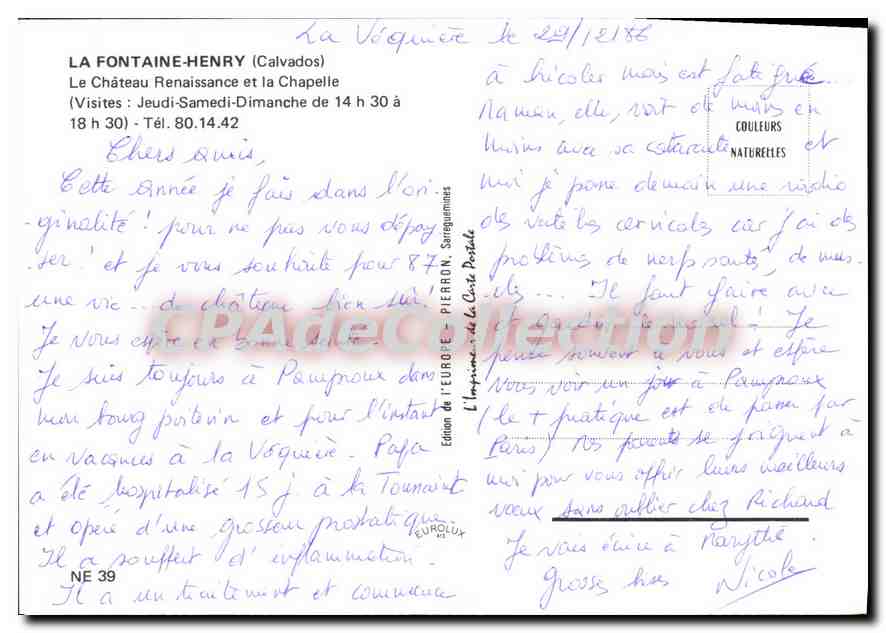 La Véquière le 29/12/86
LA FONTAINE-HENRY (Calvados)
Le Château Renaissance et la Chapelle
(Visites : Jeudi-Samedi-Dimanche de 14 h 30 à
18 h 30) - Tél. 80.14.42
Chers amis,
Cette année je fais dans l'ori-
-ginalité ! pour ne pas vous dépay
-ser ! et je vous souhaite pour 87
une vie... de château bien sûr !
Je vous espère en bonne santé.
Je suis toujours à Pamproux dans
mon bourg poitevin et pour l'instant
en vacances à la Véquière. Papa
a été hospitalisé 15 j. à la Toussaint
et opéré d'une grosseur prostatique.
Il a souffert d'inflammation.
Il a un traitement et commence
NE 39
Edition de l'EUROPE - PIERRON, Sarreguemines
L'Imprimeur de la Carte Postale
EUROLUX
COULEURS
NATURELLES
à bricoler mais est fatigué...
Maman, elle, voit de moins en
moins avec sa cataracte et
moi je passe demain une radio
des vertèbres cervicales car j'ai des
problèmes de nerfs sautés, de mus-
-cles... Il faut faire avec
et garder le moral ! Je
pense souvent à vous et espère
vous voir un jour à Pamproux
(le + pratique est de passer par
Paris) Mes parents se joignent à
moi pour vous offrir leurs meilleurs
voeux sans oublier chez Richard
Je vais écrire à Marythé.
Grosses bises Nicole
CPAdeCollection